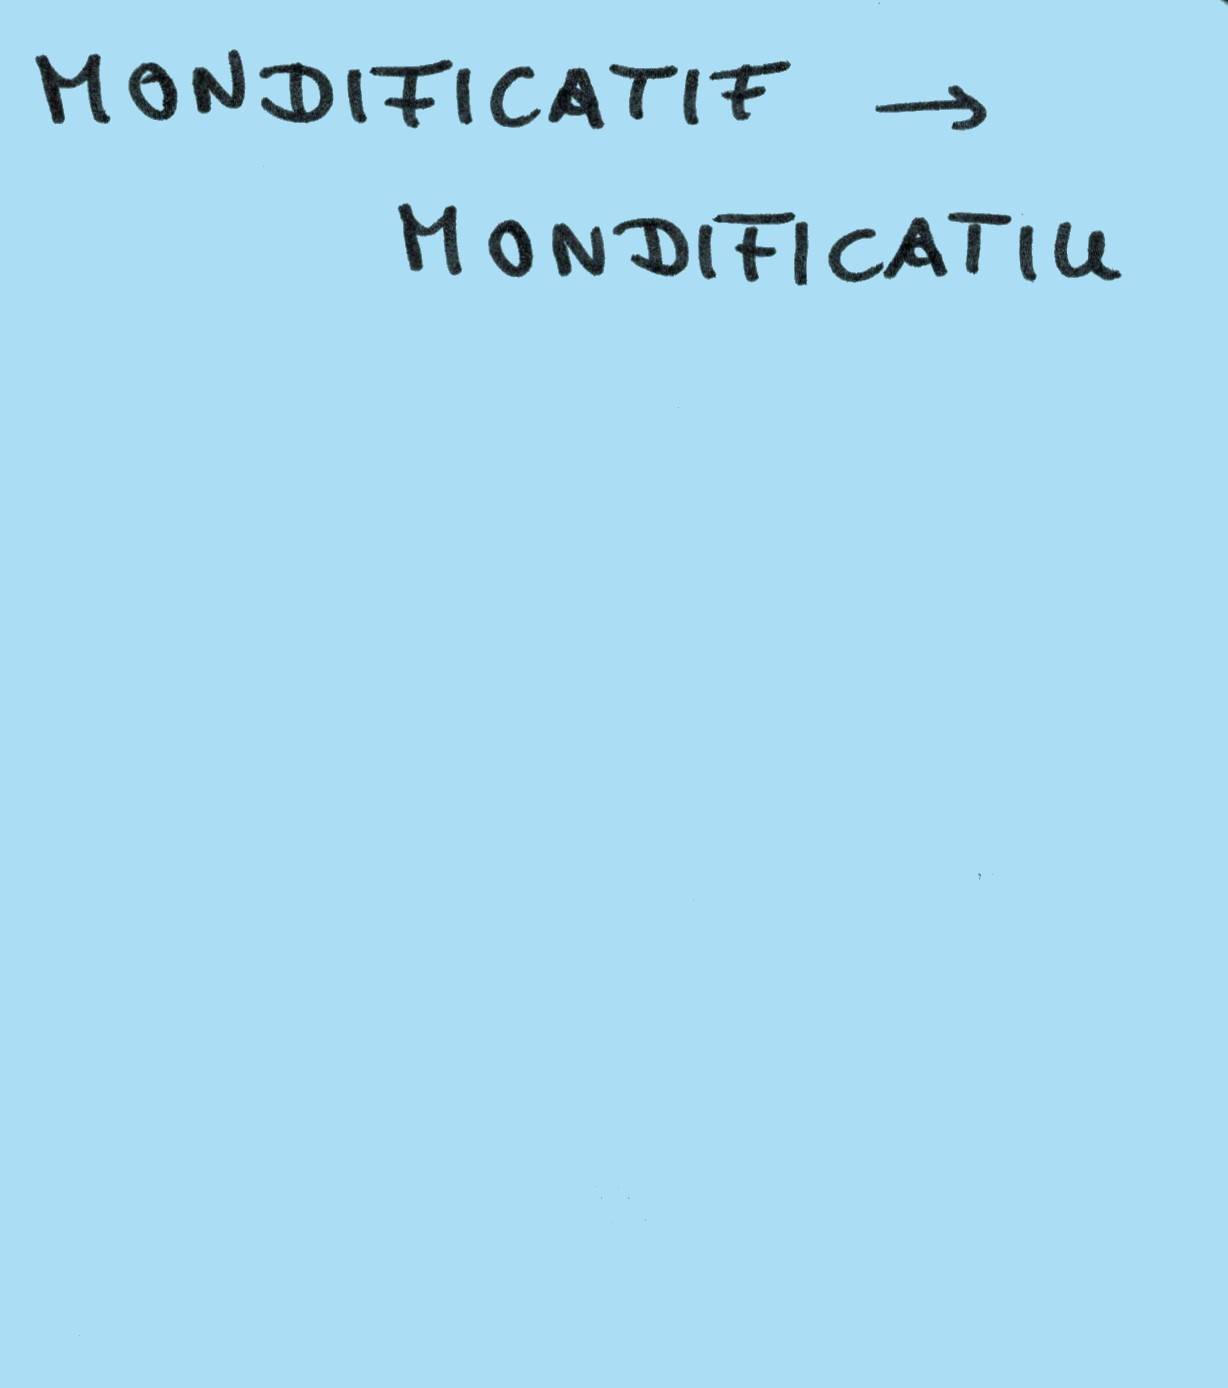 MONDIFICATIF →
MONDIFICATIU